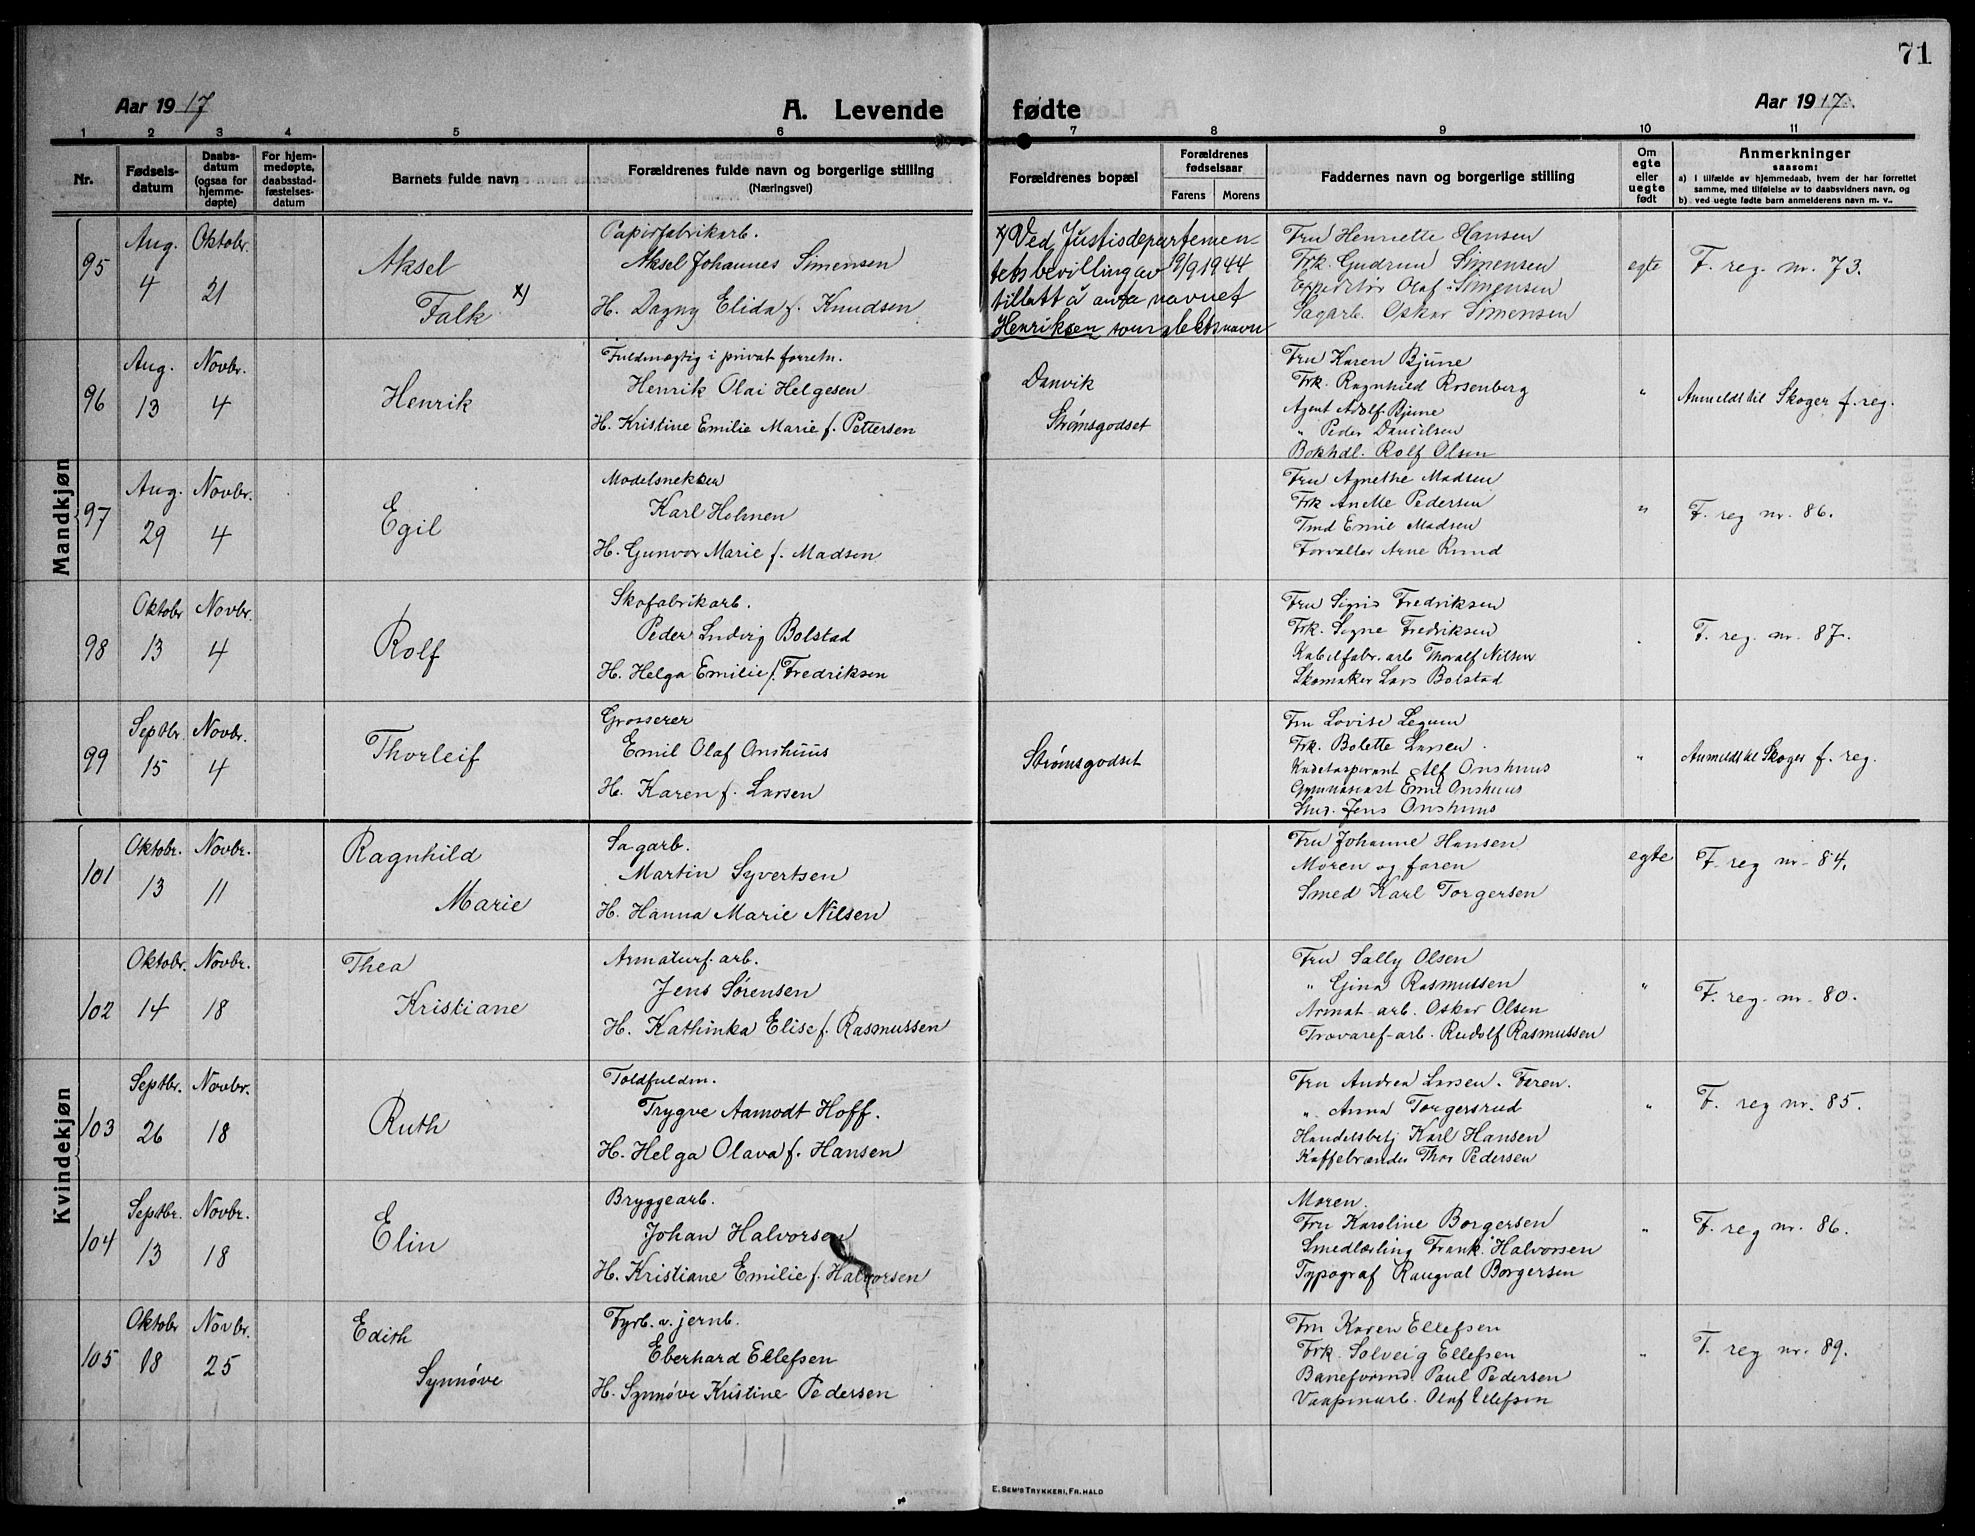 71
Aar 1917
A. Levende fødte
Aar 1917.
1 2 3 4 5 6 7 8 9 10 11
Nr.
Fødsels-
datum
Daabs-
datum
(ogsaa for
hjemme-
døpte)
For hjem-
medøpte,
daabsstad-
fæstelses-
datum
Barnets fulde navn
Forældrenes fulde navn og borgerlige stilling
(Næringsvei)
Forældrenes bopæl
Forældrenes
fødselsaar
Farens Morens
Faddernes navn og borgerlige stilling
Om
egte
eller
uegte
født
Anmerkninger
saasom:
a) I tilfælde av hjemmedaab, hvem der har forrettet
samme, med tilføielse av to daabsvidners navn, og
b) ved uegte fødte barn anmelderens navn m. v..
Mandkjøn
95
Aug.
4
Oktobr.
21
Aksel
Falk x)
Papirfabrikarb.
Aksel Johannes Simensen
H. Dagny Elida f. Knudsen
x) Ved Justisdepartemen-
tets bevilling av 19/9 1944
tillatt å anta navnet
Henriksen som slektsnavn
Fru Henriette Hansen
Frk. Gudrun Simensen
Expeditør Olaf Simensen
Sagarb. Oskar Simensen
egte
F. reg. nr. 73.
96
Aug.
13
Novbr.
4
Henrik
Fuldmægtig i privat forretn.
Henrik Olai Helgesen
H. Kristine Emilie Marie f. Pettersen
Danvik
Strømsgodset
Fru Karen Bjune
Frk. Ragnhild Rosenberg
Agent Adolf Bjune
" Peder Danielsen
Bokhdl. Rolf Olsen
"
Anmeldt til Skoger f. reg.
97
Aug.
29
Novbr.
4
Egil
Modelsnekker
Karl Holmen
H. Gunvor Marie f. Madsen
Fru Agnethe Madsen
Frk Anette Pedersen
Emil Madsen
Forvalter Arne Rund
"
F. reg nr. 86.
98
Oktobr
13
Novbr.
4
Rolf
Skofabrikarb.
Peder Ludvig Bolstad
H. Helga Emilie f. Fredriksen
Fru Sigrid Fredriksen
Frk. Signe Fredriksen
Kabelfabr. arb Thoralf Nilsen
Skomaker Lars Bolstad
F. reg. nr. 87.
99
Septbr.
15
Novbr.
4
Thorleif
Grosserer
Emil Olaf Onshuus
H. Karen f. Larsen
Strømsgodset
Fru Lovise Legum
Frk. Bolette Larsen.
Kadetaspirant Alf Onshuus
Gymnasiast Emil Onshuus
Stud. Jens Onshuus
"
Anmeldt til Skoger f. reg.
Kvindekjøn
101
Oktobr.
13
Novbr.
11
Ragnhild
Marie
Sagarb.
Martin Syvertsen
H. Hanna Marie Nilsen
Fru Johanne Hansen
Moren og faren
Smed Karl Torgersen
egte
F. reg nr. 84.
102
Oktobr.
14
Novbr.
18
Thea
Kristiane
Armaturf. arb.
Jens Sørensen
H. Kathinka Elise f. Rasmussen
Fru Sally Olsen
" Gina Rasmussen
Armat-arb. Oskar Olsen
Trævaref-arb. Rudolf Rasmussen
"
F. reg. nr. 80.
103
Septbr.
26
Novbr.
18
Ruth
Toldfuldm.
Trygve Aamodt Hoff.
H. Helga Olava f. Hansen
Fru Andrea Larsen. Faren.
" Anna Torgersrud
Handelsbetj Karl Hansen
Kaffebrænder Thor Pedersen
"
F. reg nr. 85.
104
Septbr.
13
Novbr.
18
Elin
Bryggearb.
Johan Halvorsen
H. Kristiane Emilie f. Halvorsen
Moren.
Fru Karoline Borgersen
Smedlærling Frank Halvorsen
Typograf Rangval Borgersen
"
F. reg nr. 86.
105
Oktobr
18
Novbr.
25
Edith
Synnøve
Fyrb. v. jernb.
Eberhard Ellefsen
H. Synnøve Kristine Pedersen
Fru Karen Ellefsen
Frk. Solveig Ellefsen
Baneformd Paul Pedersen
Vaapenarb. Olaf Ellefsen
"
F. reg nr. 89.
E. SEM'S TRYKKERI, FR.HALD